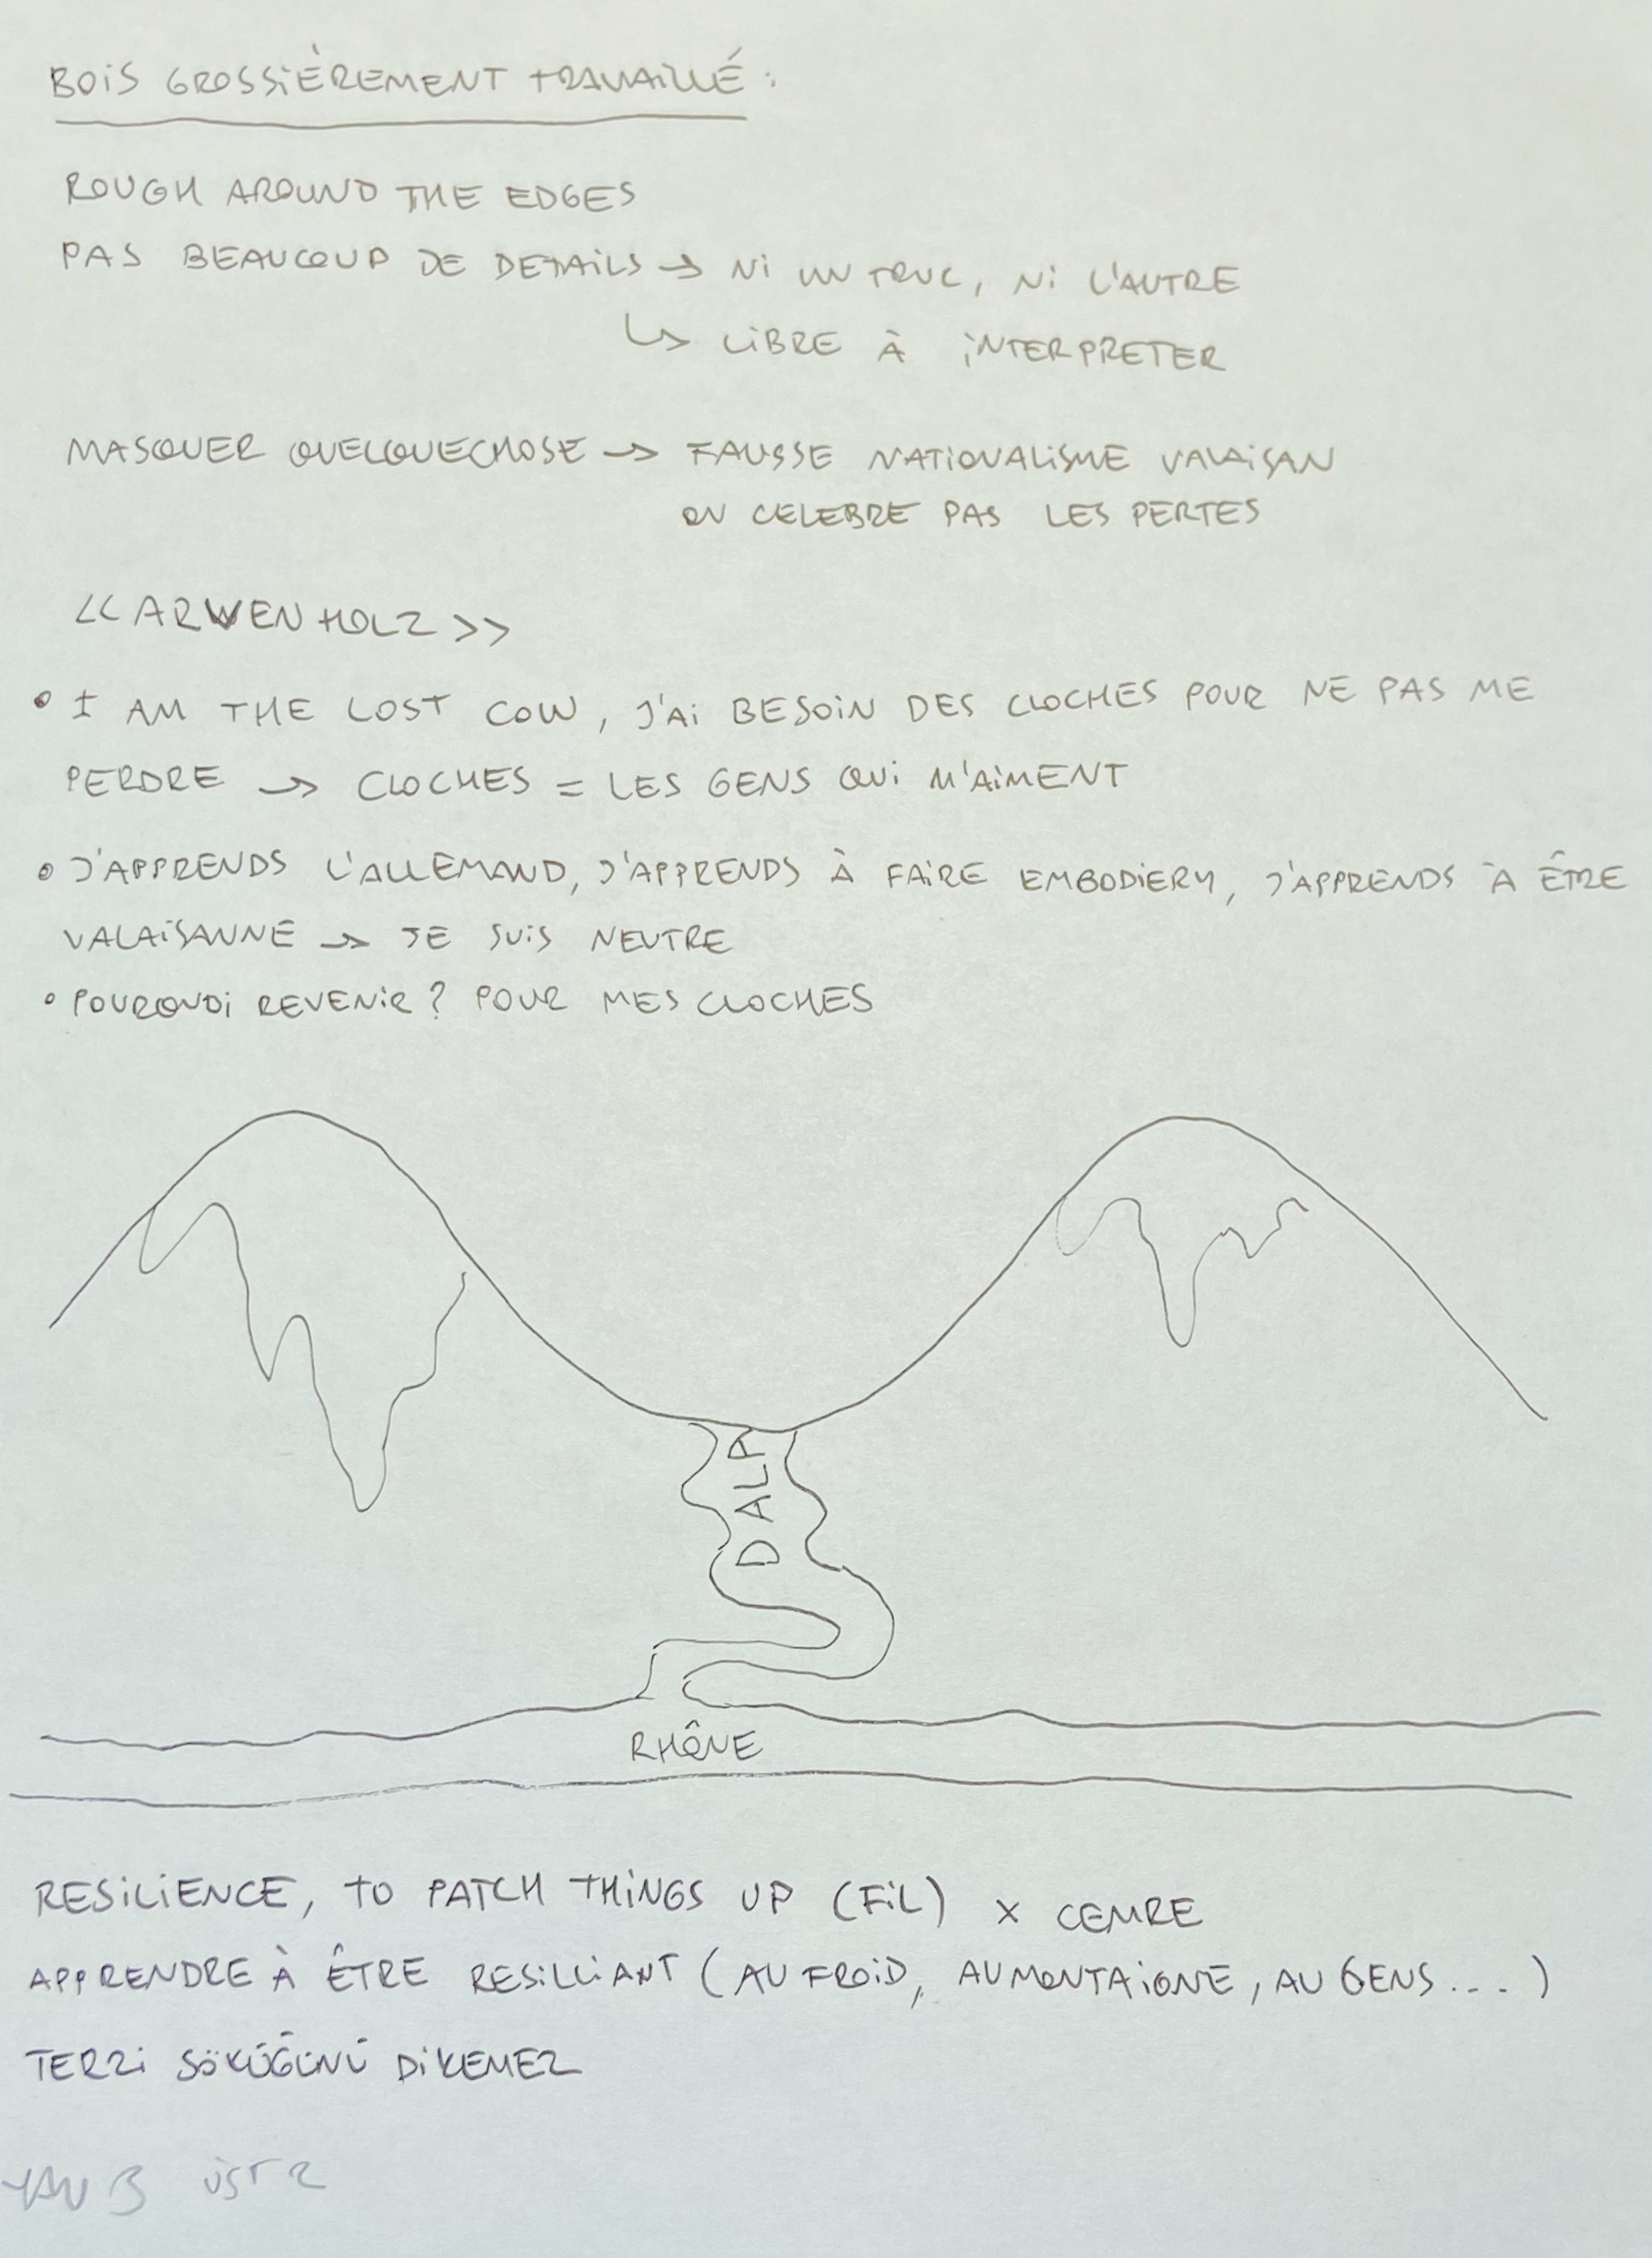 BOIS GROSSIÈREMENT TRAVAILLÉ :
ROUGH AROUND THE EDGES
PAS BEAUCOUP DE DETAILS → NI UN TRUC, NI L'AUTRE
↳ LIBRE À INTERPRETER
MASQUER QUELQUECHOSE → FAUSSE NATIONALISME VALAISAN
ON CELEBRE PAS LES PERTES
<< ARWENHOLZ >>
• I AM THE LOST COW, J'AI BESOIN DES CLOCHES POUR NE PAS ME
PERDRE → CLOCHES = LES GENS QUI M'AIMENT
• J'APPRENDS L'ALLEMAND, J'APPRENDS À FAIRE EMBODIERY, J'APPRENDS À ÊTRE
VALAISANNE → JE SUIS NEUTRE
• POURQUOI REVENIR ? POUR MES CLOCHES
DALA
RHÔNE
RESILIENCE, TO PATCH THINGS UP (FIL) x CEMRE
APPRENDRE À ÊTRE RESILLIANT (AU FROID, AU MONTAIGNE, AU GENS...)
TERZI SÖKÜĞÜNÜ DİKEMEZ
YAN 3 ÜST 2